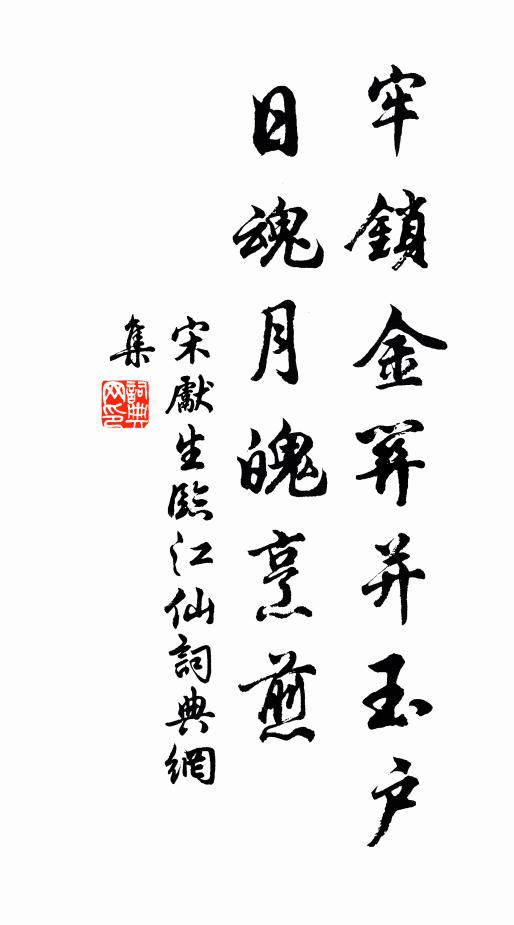 牢鎖金關并玉户
日魂月魄烹煎
宋獻生臨江仙詞典網
集
詞典網印